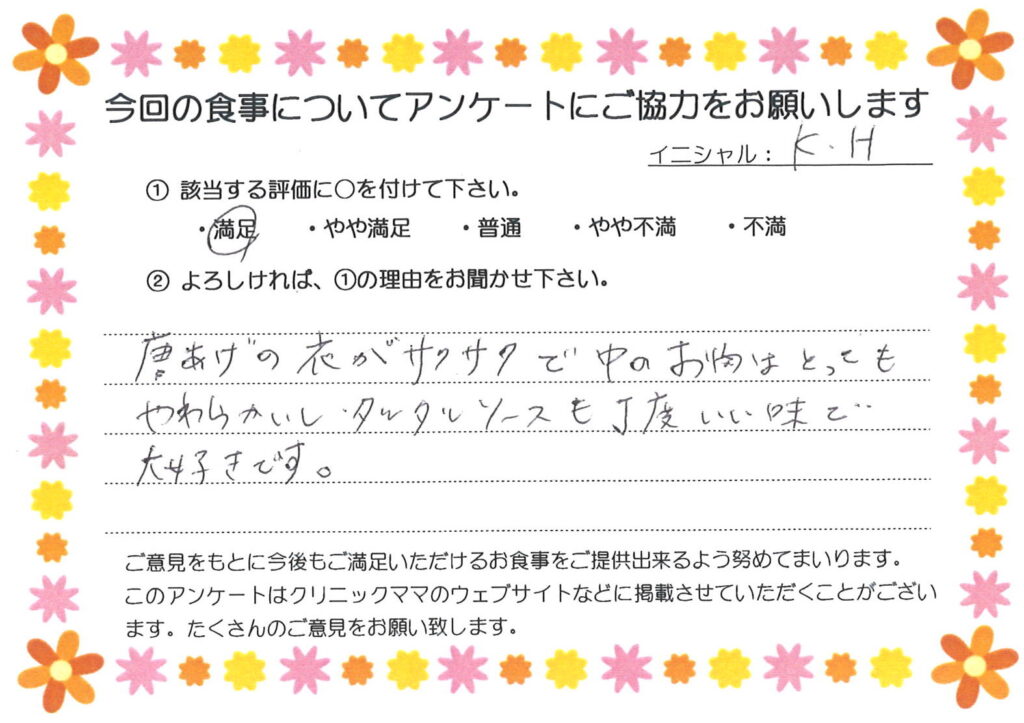 今回の食事についてアンケートにご協力をお願いします
イニシャル： K.H
① 該当する評価に○を付けて下さい。
・満足 ・やや満足 ・普通 ・やや不満 ・不満
② よろしければ、①の理由をお聞かせ下さい。
唐あげの衣がサクサクで中のお肉はとっても
やわらかいし、タルタルソースも丁度いい味で
大好きです。
ご意見をもとに今後もご満足いただけるお食事をご提供出来るよう努めてまいります。
このアンケートはクリニックママのウェブサイトなどに掲載させていただくことがござい
ます。たくさんのご意見をお願い致します。